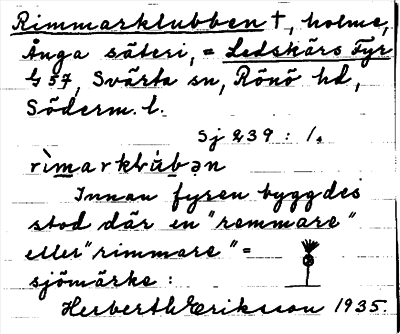 Rimmarklubben †, holme,
Ånga säteri, = Ledskärs Fyr
57, Svärta sn, Rönö hd,
Söderm. l.
Sj 239 : 1.
Innan fyren byggdes
stod där en "remmare"
eller "rimmare" =
sjömärke :
Herberth Eriksson 1935.